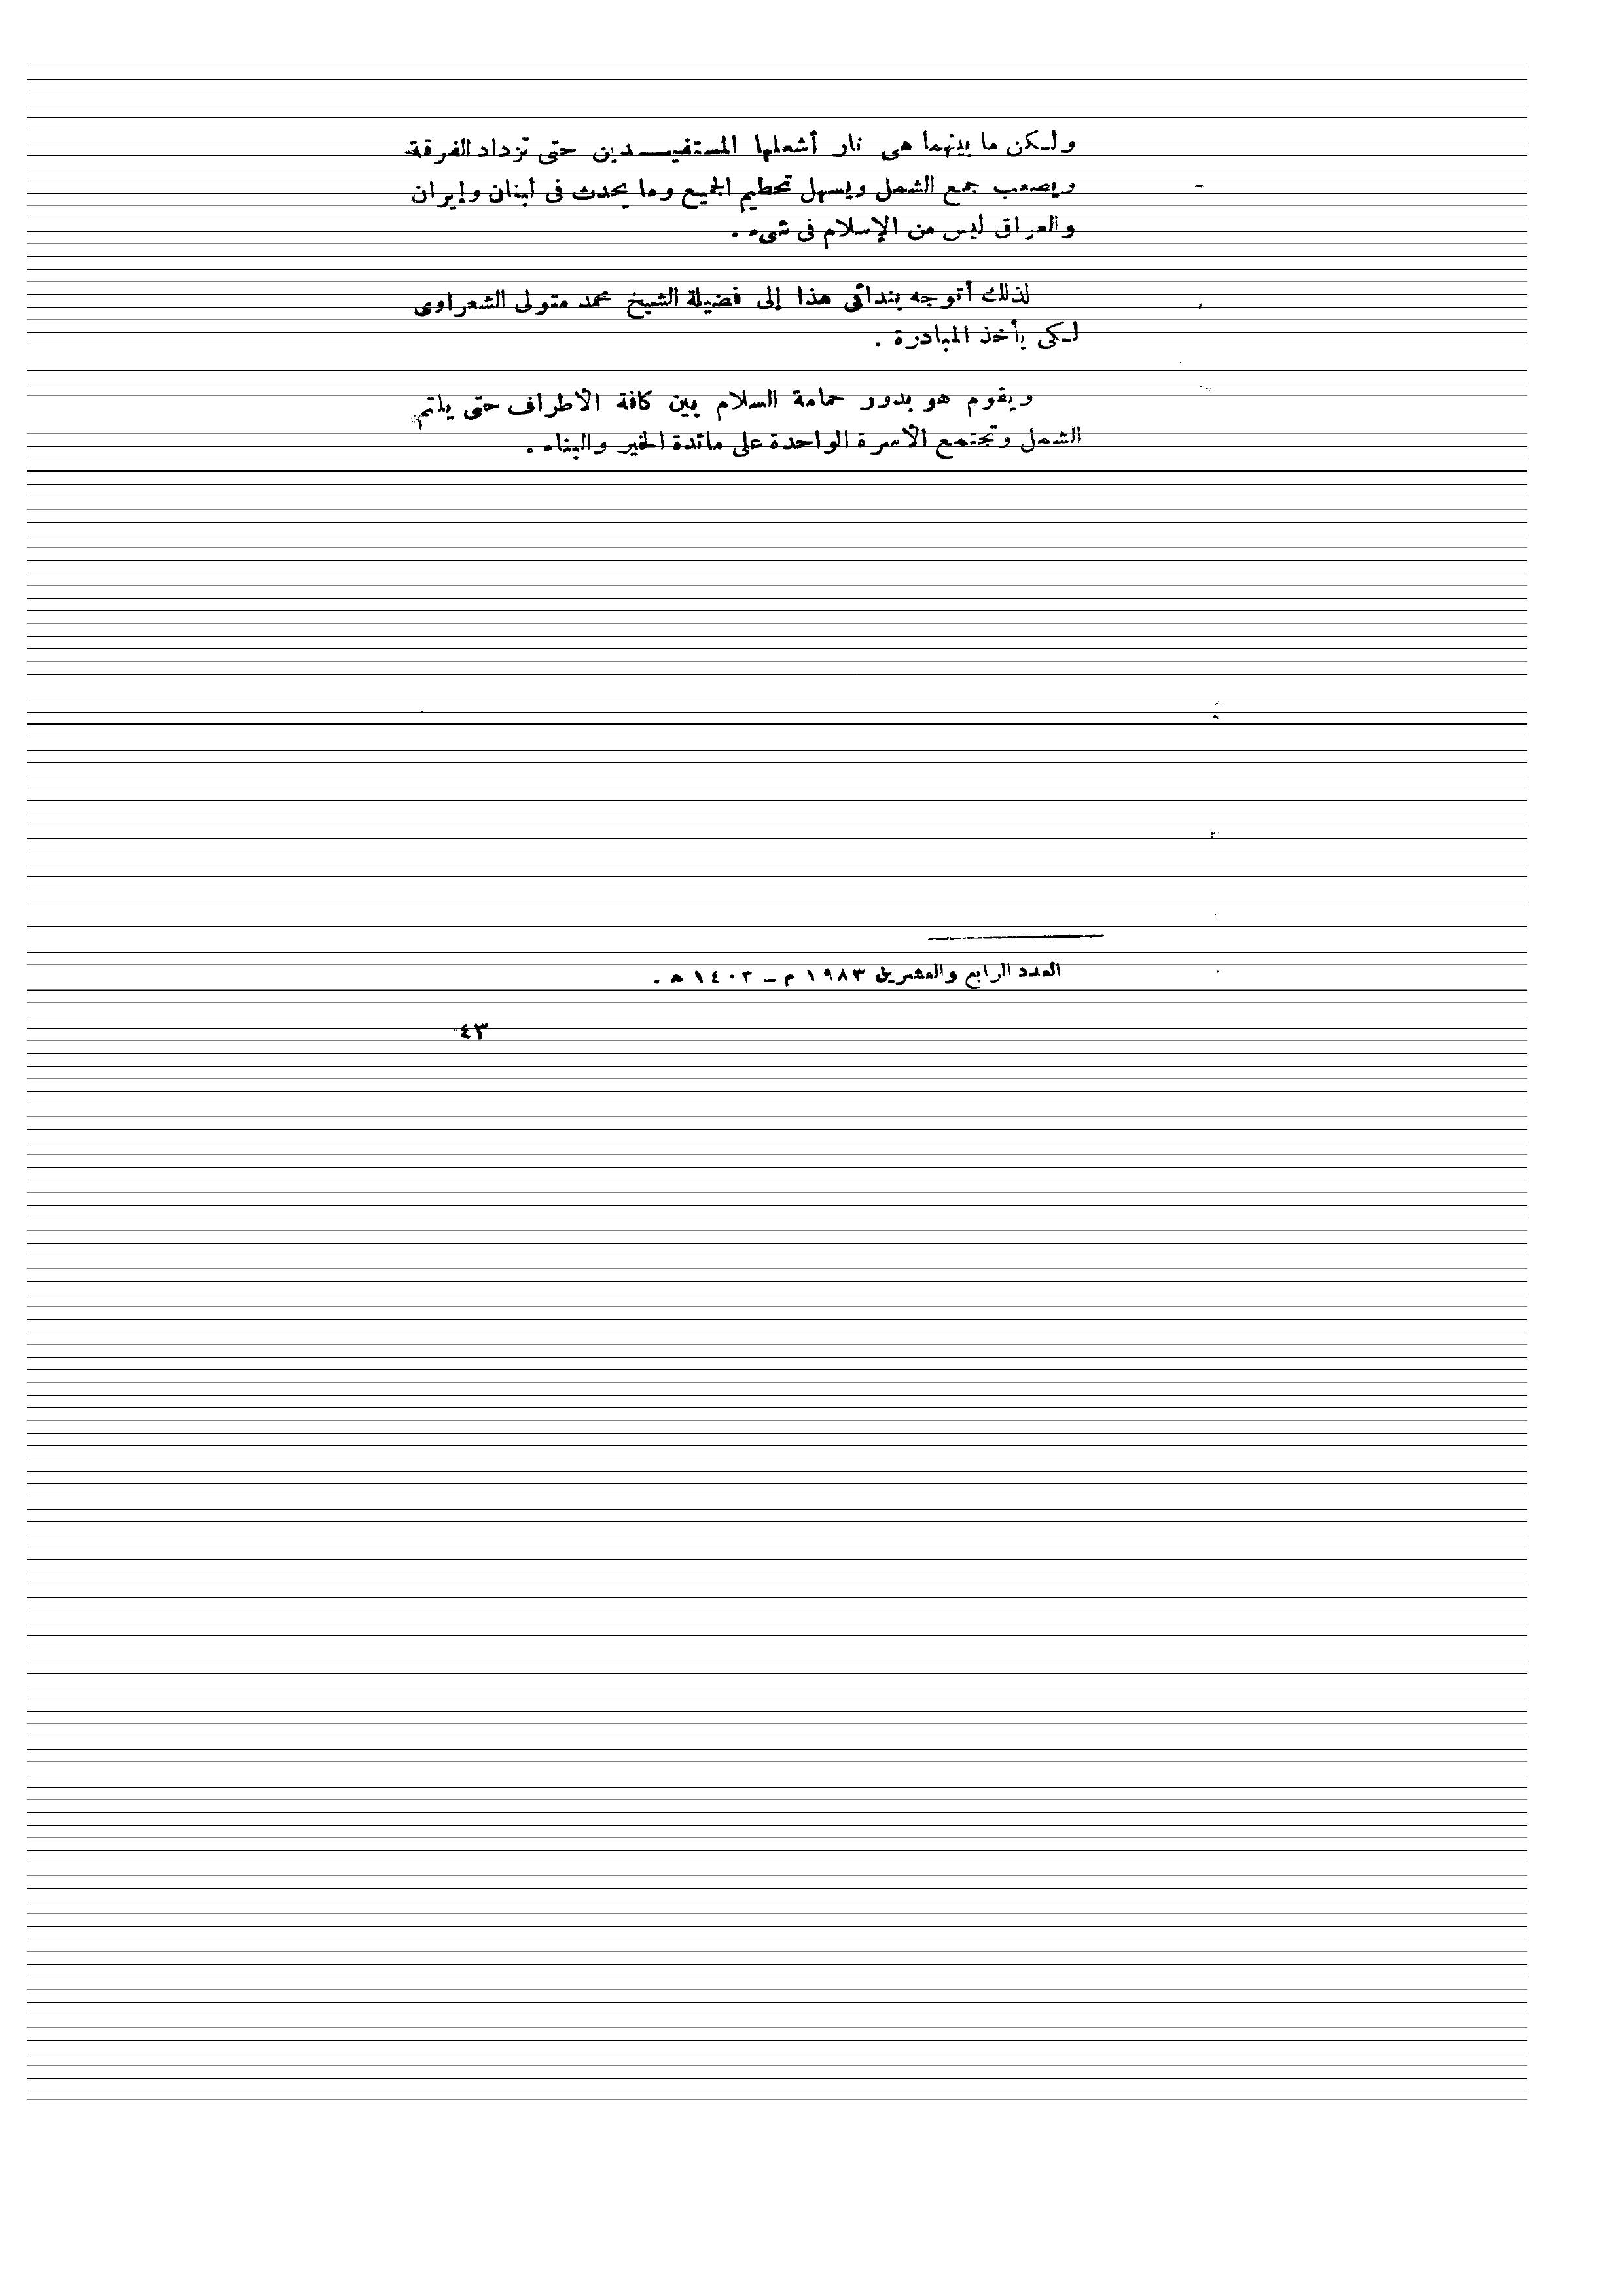 ولكن ما بينهما هى نار أشعلها المستفيدين حتى تزداد الفرقة
ويصعب جمع الشمل ويسهل تحطيم الجميع وما يحدث فى لبنان وإيران
والعراق ليس من الإسلام فى شىء .
لذلك أتوجه بندائى هذا إلى فضيلة الشيخ محمد متولى الشعراوى
لكى يأخذ المبادرة .
ويقوم هو بدور حمامة السلام بين كافة الأطراف حتى يلتم
الشمل وتجتمع الأسرة الواحدة على مائدة الخير والبناء .
العدد الرابع والعشرين ١٩٨٣ م – ١٤٠٣ ه .
٤٣